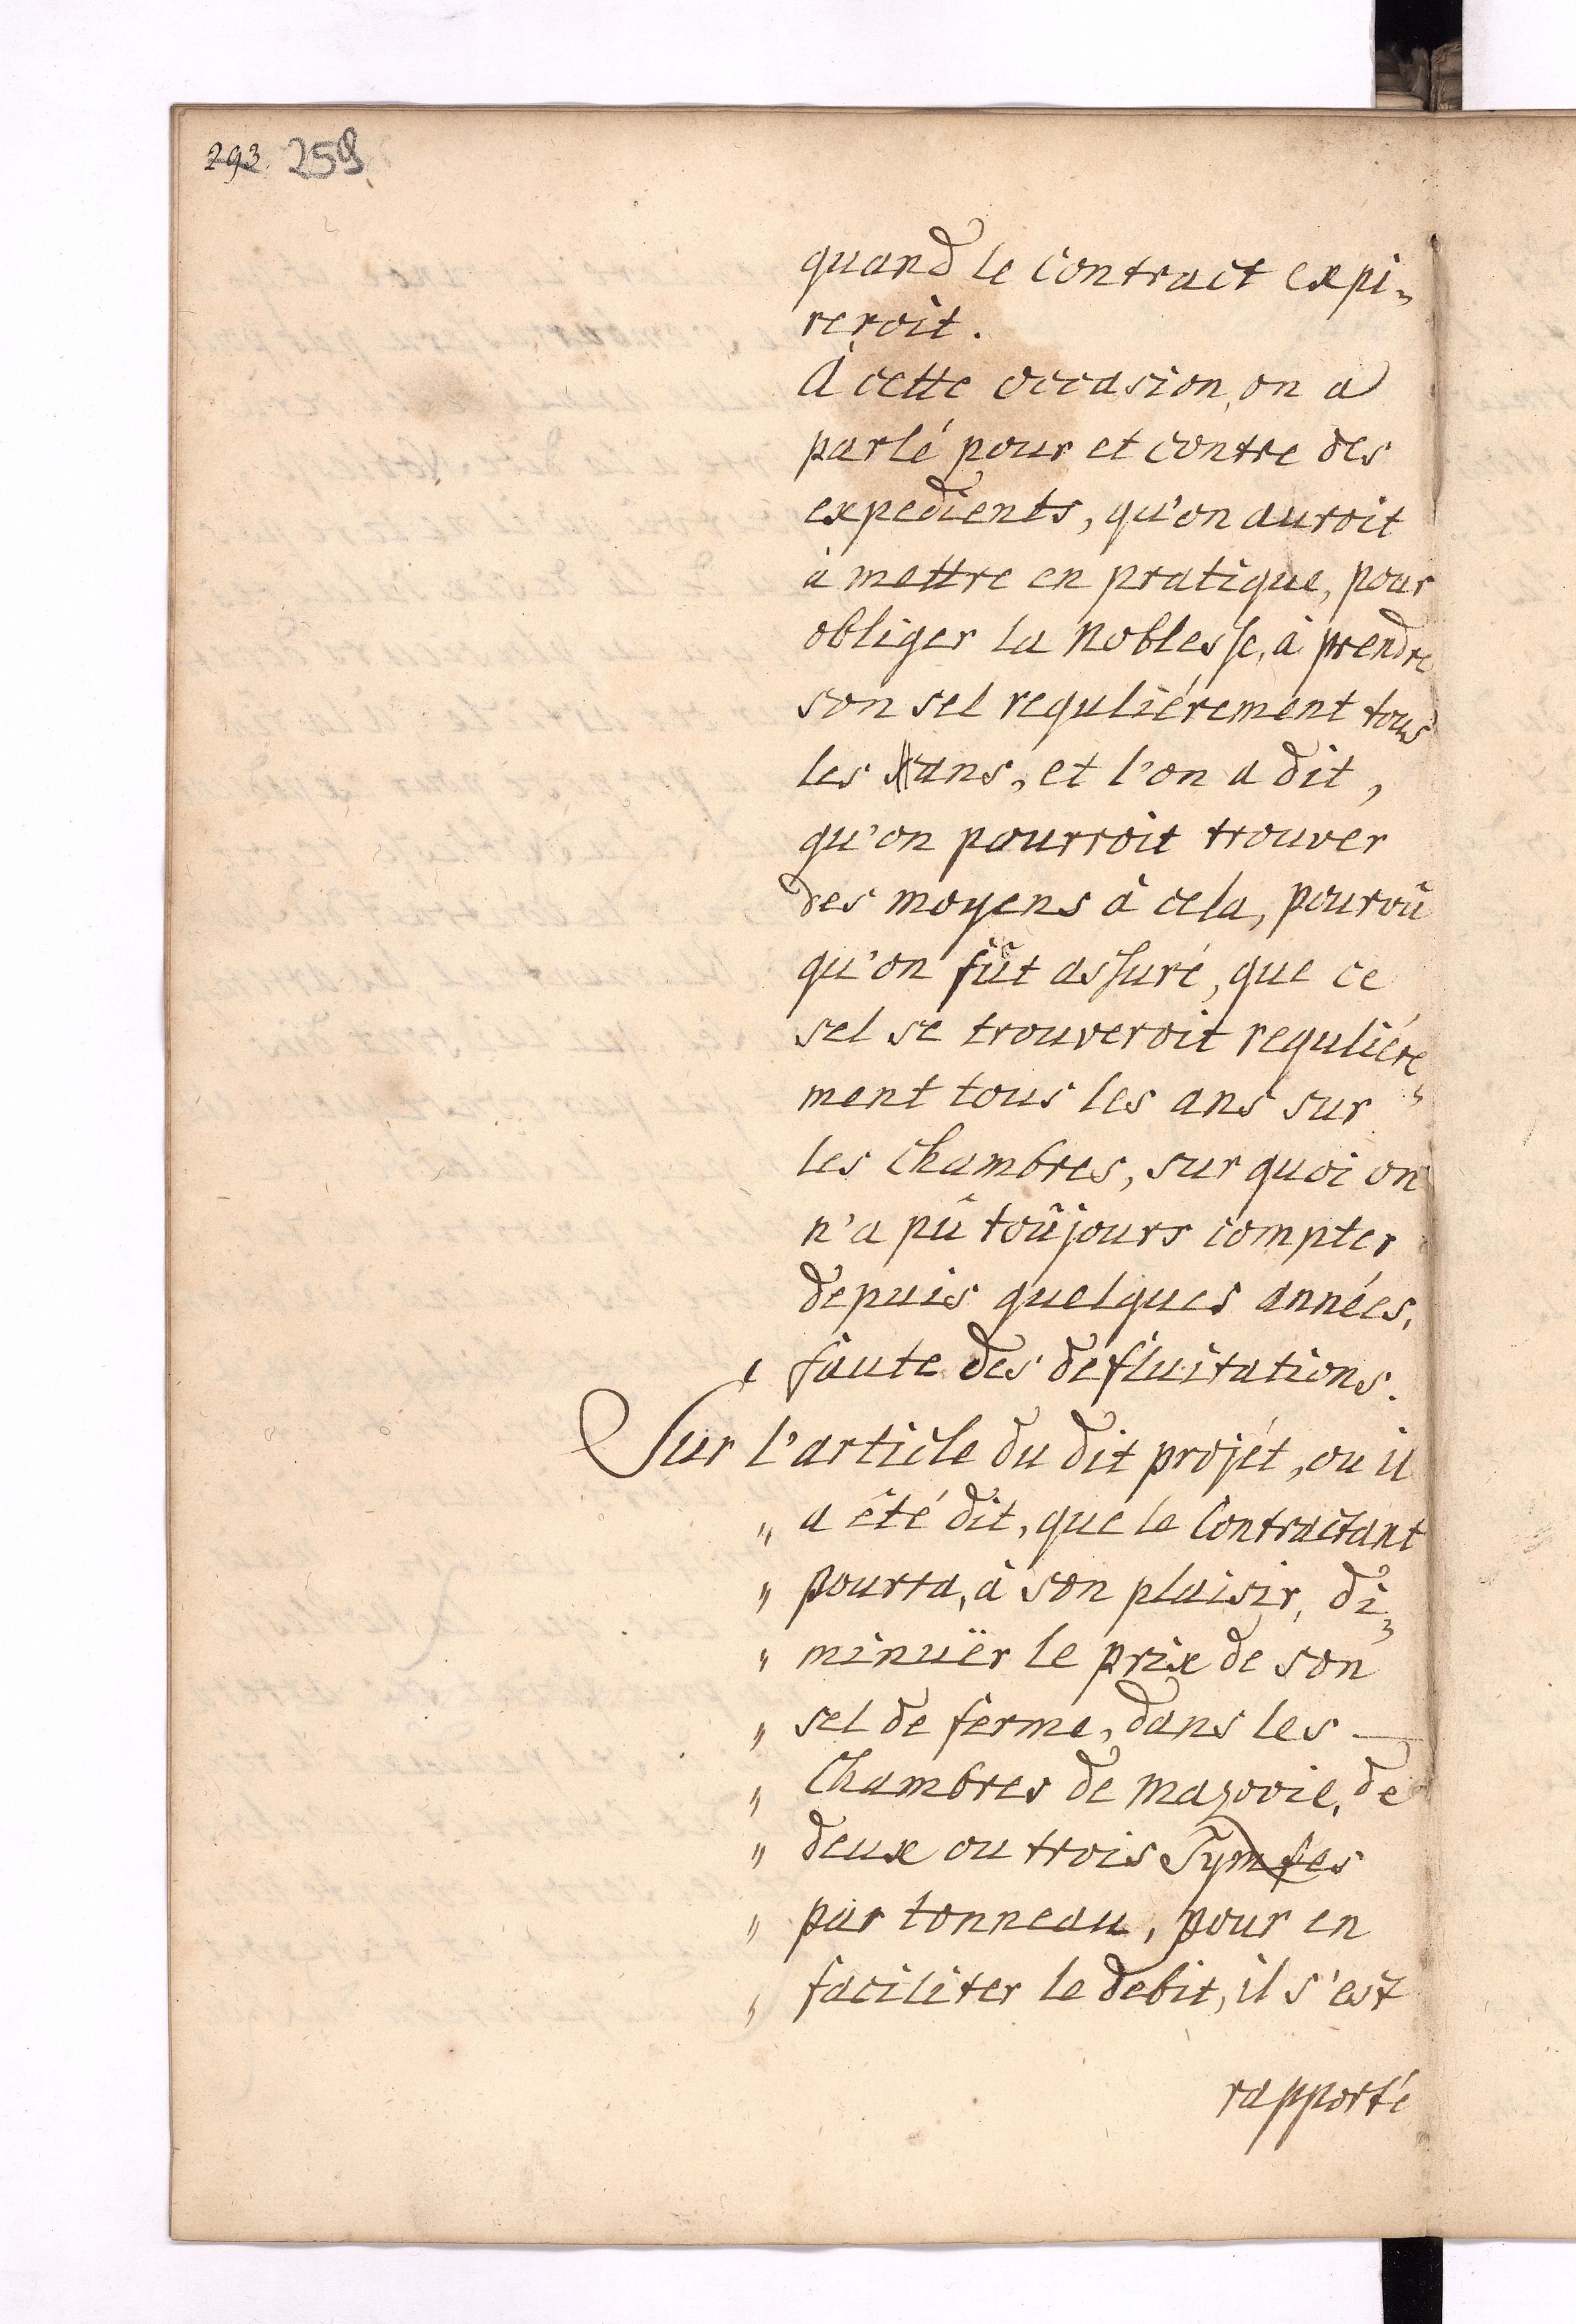 293. 259
quand le contract expi-
reroit.
A cette occasion, on a
parlé pour et contre des
expedients, qu'on auroit
à mettre en pratique, pour
obliger la noblesse, à prendre
son sel reguliérement tous
les ans, et l'on a dit,
qu'on pourroit trouver
des moyens à cela, pourvû
qu'on fût assuré, que ce
sel se trouveroit reguliére-
ment tous les ans sur
les Chambres, sur quoi on
n'a pû toûjours compter
depuis quelques années,
faute des defluitations.
Sur l'article du dit projét, ou il
" a êté dit, que le Contractant
" pourra, à son plaisir, di-
" minuër le prix de son
" sel de ferme, dans les
" Chambres de Mazovie, de
" deux ou trois Tymfes
" par tonneau, pour en
" faciliter le debit, il s'est
rapporté